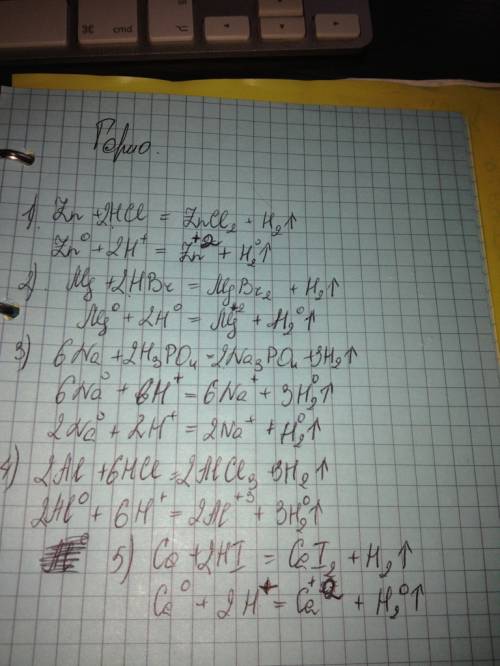 ⌘ cmd
alt ⌥
1) Zn + 2HCl = ZnCl₂ + H₂↑
Zn⁰ + 2H⁺ = Zn⁺² + H₂⁰↑
2) Mg + 2HBr = MgBr₂ + H₂↑
Mg⁰ + 2H⁰ = Mg⁺² + H₂⁰↑
3) 6Na + 2H₃PO₄ = 2Na₃PO₄ + 3H₂↑
6Na⁰ + 6H⁺ = 6Na⁺ + 3H₂⁰↑
2Na⁰ + 2H⁺ = 2Na⁺ + H₂⁰↑
4) 2Al + 6HCl = 2AlCl₃ 3H₂↑
2Al⁰ + 6H⁺ = 2Al⁺³ + 3H₂⁰↑
5) Ca + 2HI = CaI₂ + H₂↑
Ca⁰ + 2H⁺ = Ca⁺² + H₂⁰↑